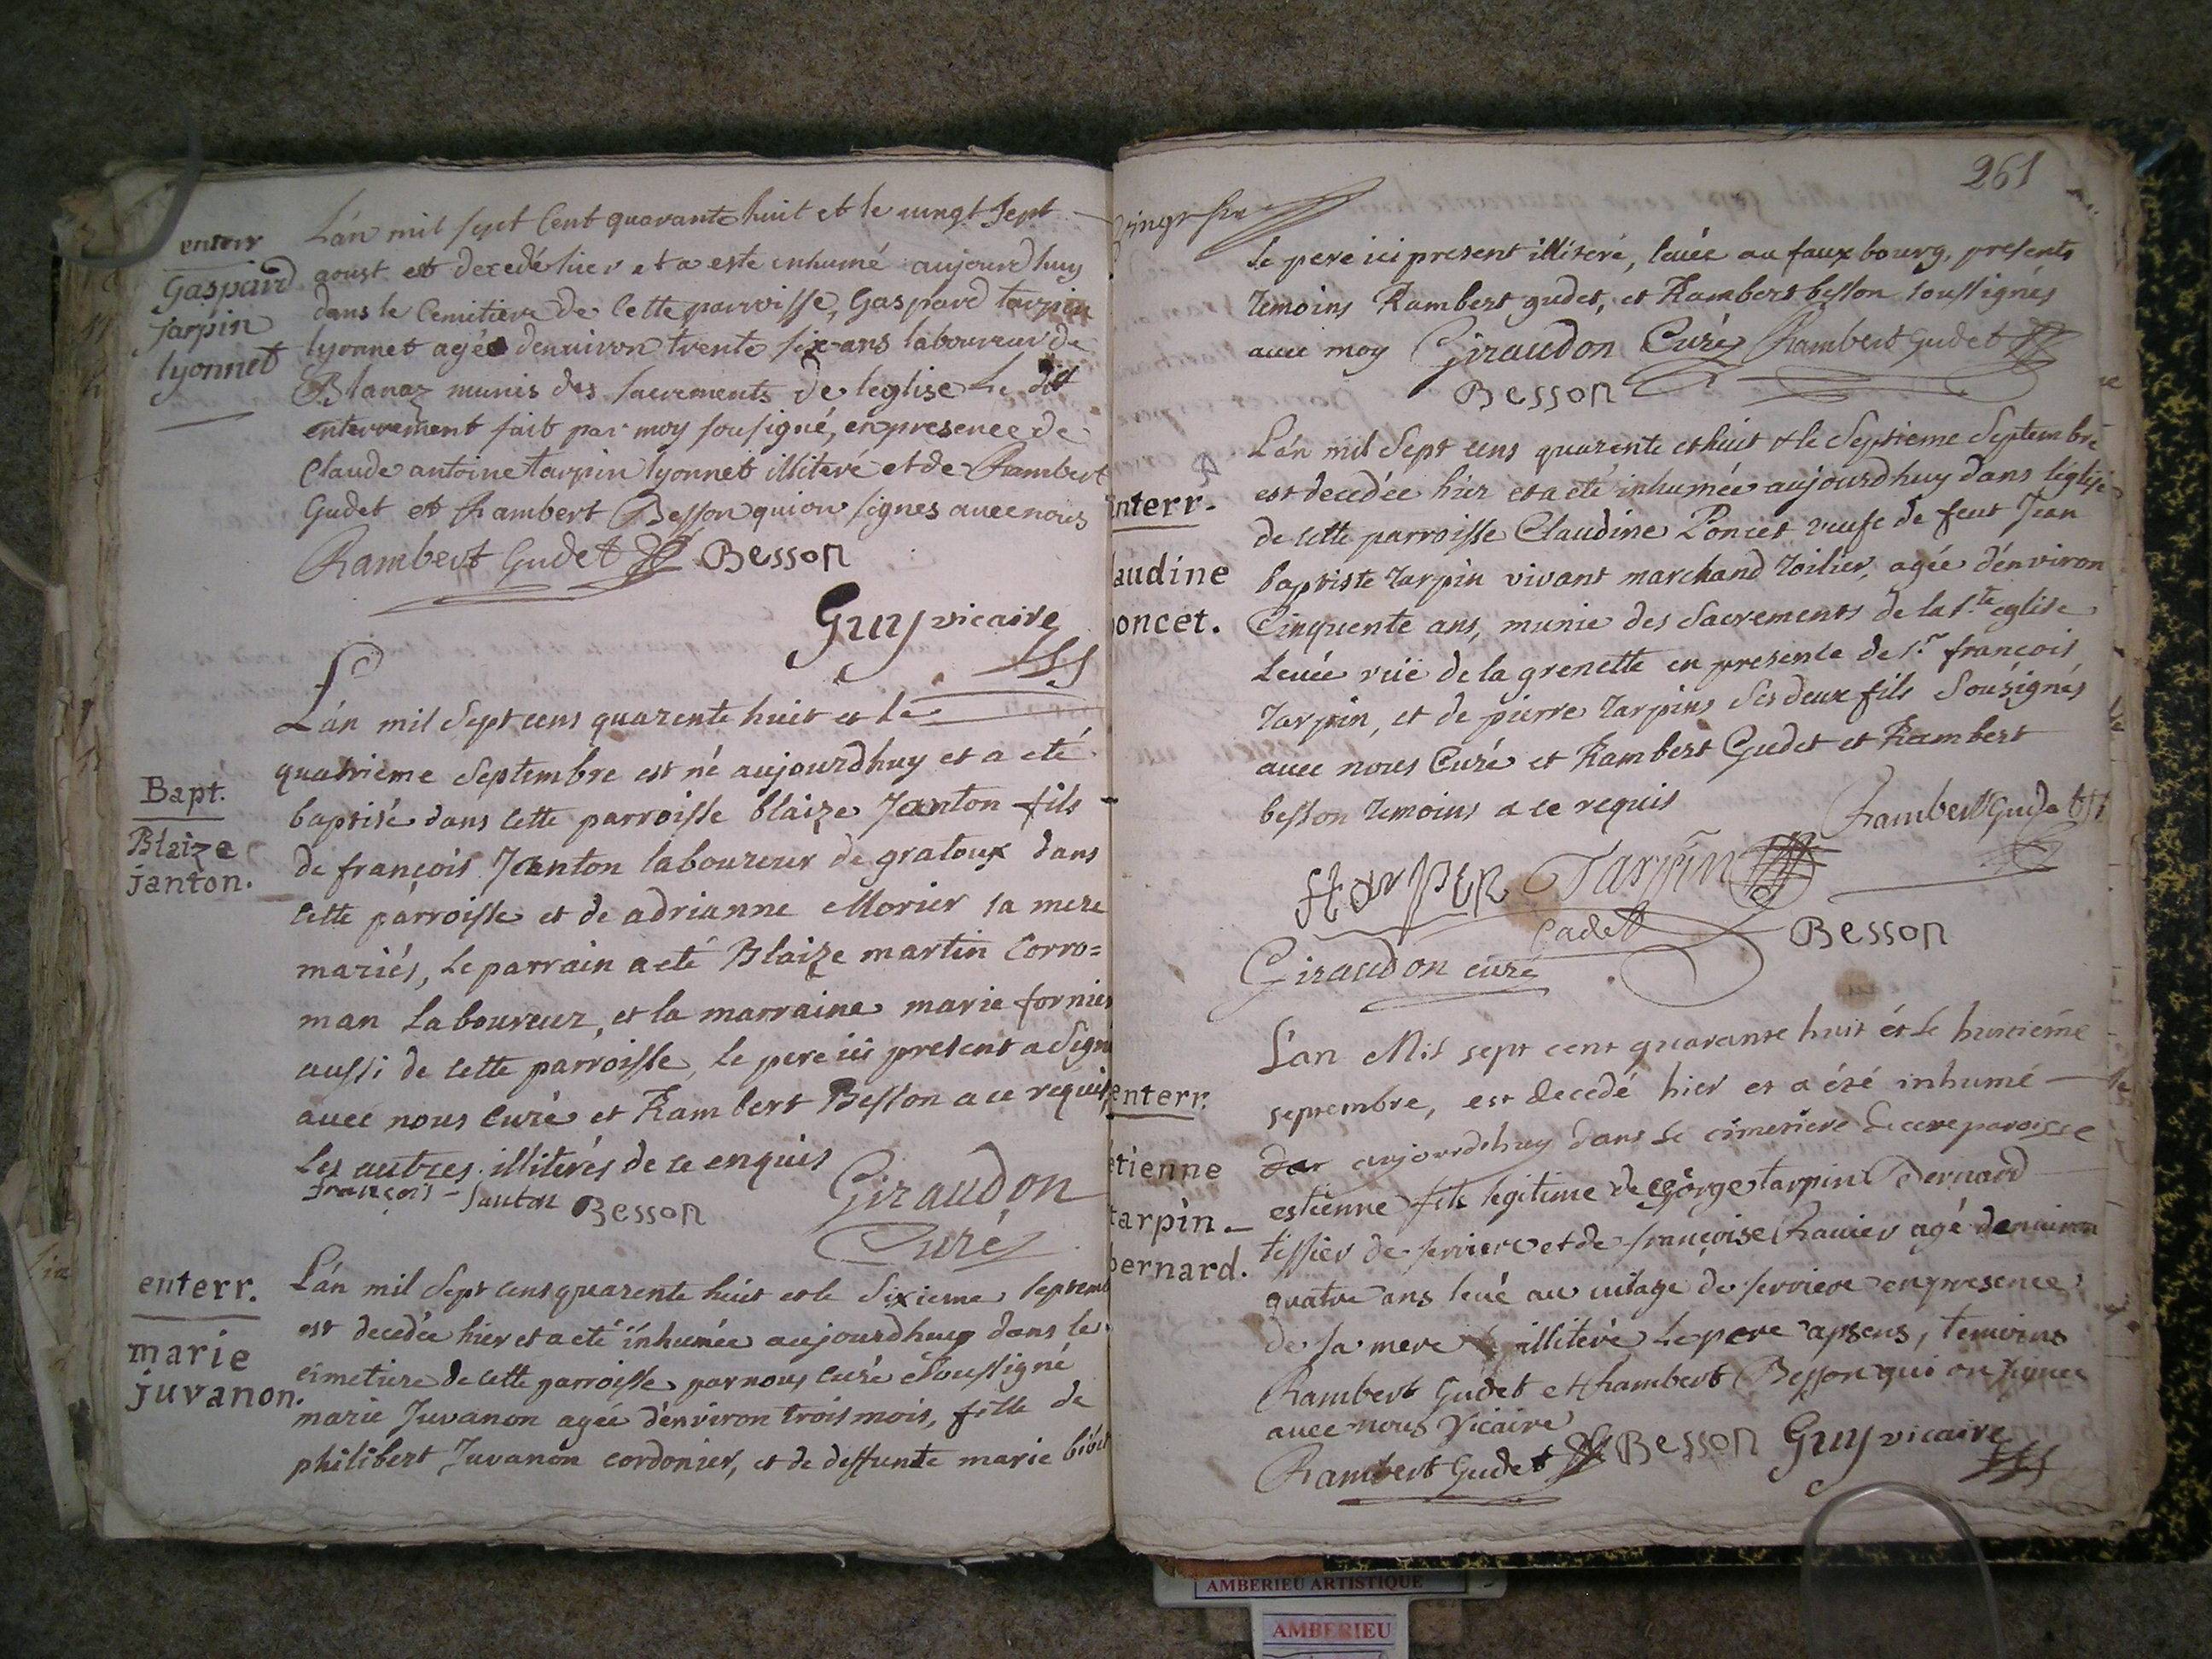 enterr
Gaspard
tarpin
lyonnet
L'an mil sept Cent quarante huit et le vingt sept
aoust est decedé hier et a este inhumé aujourdhuy
dans le Cemitiere de Cette parroisse, Gaspard tarpin
lyonnet agé denviron trente six ans laboureur de
Blanaz munis des sacrements de leglise Le dit
enterrement fait par moy sousigné, en presence de
Claude antoine tarpin lyonnet illiteré et de Rambert
Gudet et Rambert Besson qui on signes avec nous
Rambert Gudet Besson
Guy vicaire
L'an mil Sept cens quarente huit et le
Bapt.
Blaize
janton.
quatrieme Septembre est né aujourdhuy et a eté
baptisé dans cette parroisse blaize Janton fils
de françois Janton laboureur de gratoux dans
cette parroisse et de adrianne Morier sa mere
mariés, le parrain a eté Blaize martin Corro=
man Laboureur, et la marraine marie fornier
aussi de cette parroisse, le pere ici present a Signé
avec nous curé et Rambert Besson a ce requis
Les autres illiterés de ce enquis
françois - Janton Besson Giraudon
Curé
enterr.
marie
juvanon.
L'an mil Sept cens quarente huit et le Sixieme Septemb
est decedée hier et a eté inhumée aujourdhuy dans le
cimetiere de cette parroisse par nous curé Soussigné
marie Juvanon agée d'environ trois mois, fille de
philibert Juvanon cordonier, et de deffunte marie
261
le pere ici present illiteré, levée au faux bourg, presents
temoins Rambert gudet, et Rambert besson soussignés
avec moy Giraudon Curé Rambert Gudet
Besson
nterr.
audine
oncet.
L'an mil Sept cens quarente et huit & le Septieme Septembre
est decedée hier et a eté inhumée aujourdhuy dans l'église
de cette parroisse Claudine Poncet veufe de feut Jean
baptiste tarpin vivant marchand toilier, agée d'environ
Cinquente ans, munie des Sacrements de la Ste eglise
Levée ruë de la grenette en presence de Sr. françois
tarpin, et de pierre tarpins ses deux fils Sousignés
avec nous Curé et Rambert Gudet et Rambert
besson temoins a ce requis
Rambert Gudet
Tarpin
Cadet
Besson
Giraudon curé
enterr.
etienne
tarpin-
bernard.
L'an Mil sept cent quarante huit et le huitieme
septembre, est decedé hier et a été inhumé
aujourdhuy dans le cimetiere de cette paroisse
estienne fils legitime de george tarpin Bernard
tissier de serriere et de françoise Ravier agé denviron
quatre ans levé au vilage de serriere en presence
de sa mere illiteré Le pere apsens, temoins
Rambert Gudet et Rambert Besson qui on signes
avec nous Vicaire
Rambert Gudet Besson Guy vicaire
AMBERIEU ARTISTIQUE
AMBERIEU